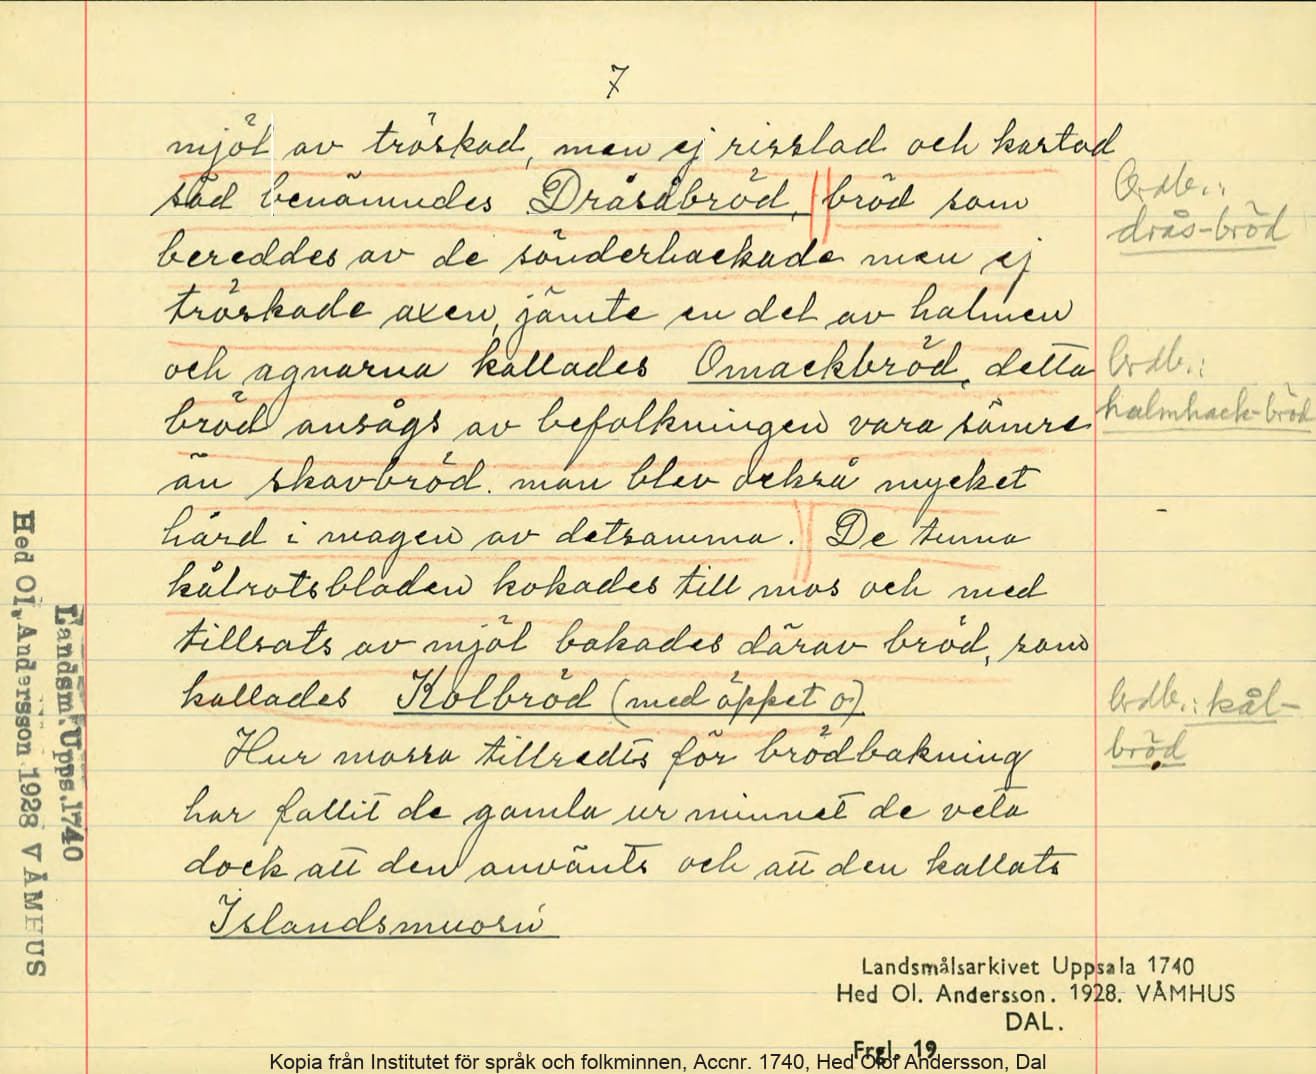 7
mjöl av tröskad, men ej risslad och kastad
säd benämndes Dråsåbröd, bröd som
bereddes av de sönderhackade men ej
tröskade axen, jämte en del av halmen
och agnarna kallades Omackbröd, detta
bröd ansågs av befolkningen vara sämre
än skavbröd. man blev också mycket
hård i magen av detsamma. De tunna
kålrotsbladen kokades till mos och med
tillsats av mjöl bakades därav bröd, som
kallades Kolbröd (med öppet o)
Hur mossa tillredts för brödbakning
har fallit de gamla ur minnet de veta
dock att den använts och att den kallats
Islandsmuosu
Ordb.:
drås-bröd
Ordb.:
halmhack-bröd
Ordb.: kål-
bröd
Landsm. Upps. 1740
Hed Ol. Andersson. 1928 V ÅMHUS
Landsmålsarkivet Uppsala 1740
Hed Ol. Andersson. 1928. VÅMHUS
DAL.
Frgl. 19
Kopia från Institutet för språk och folkminnen, Accnr. 1740, Hed Olof Andersson, Dal